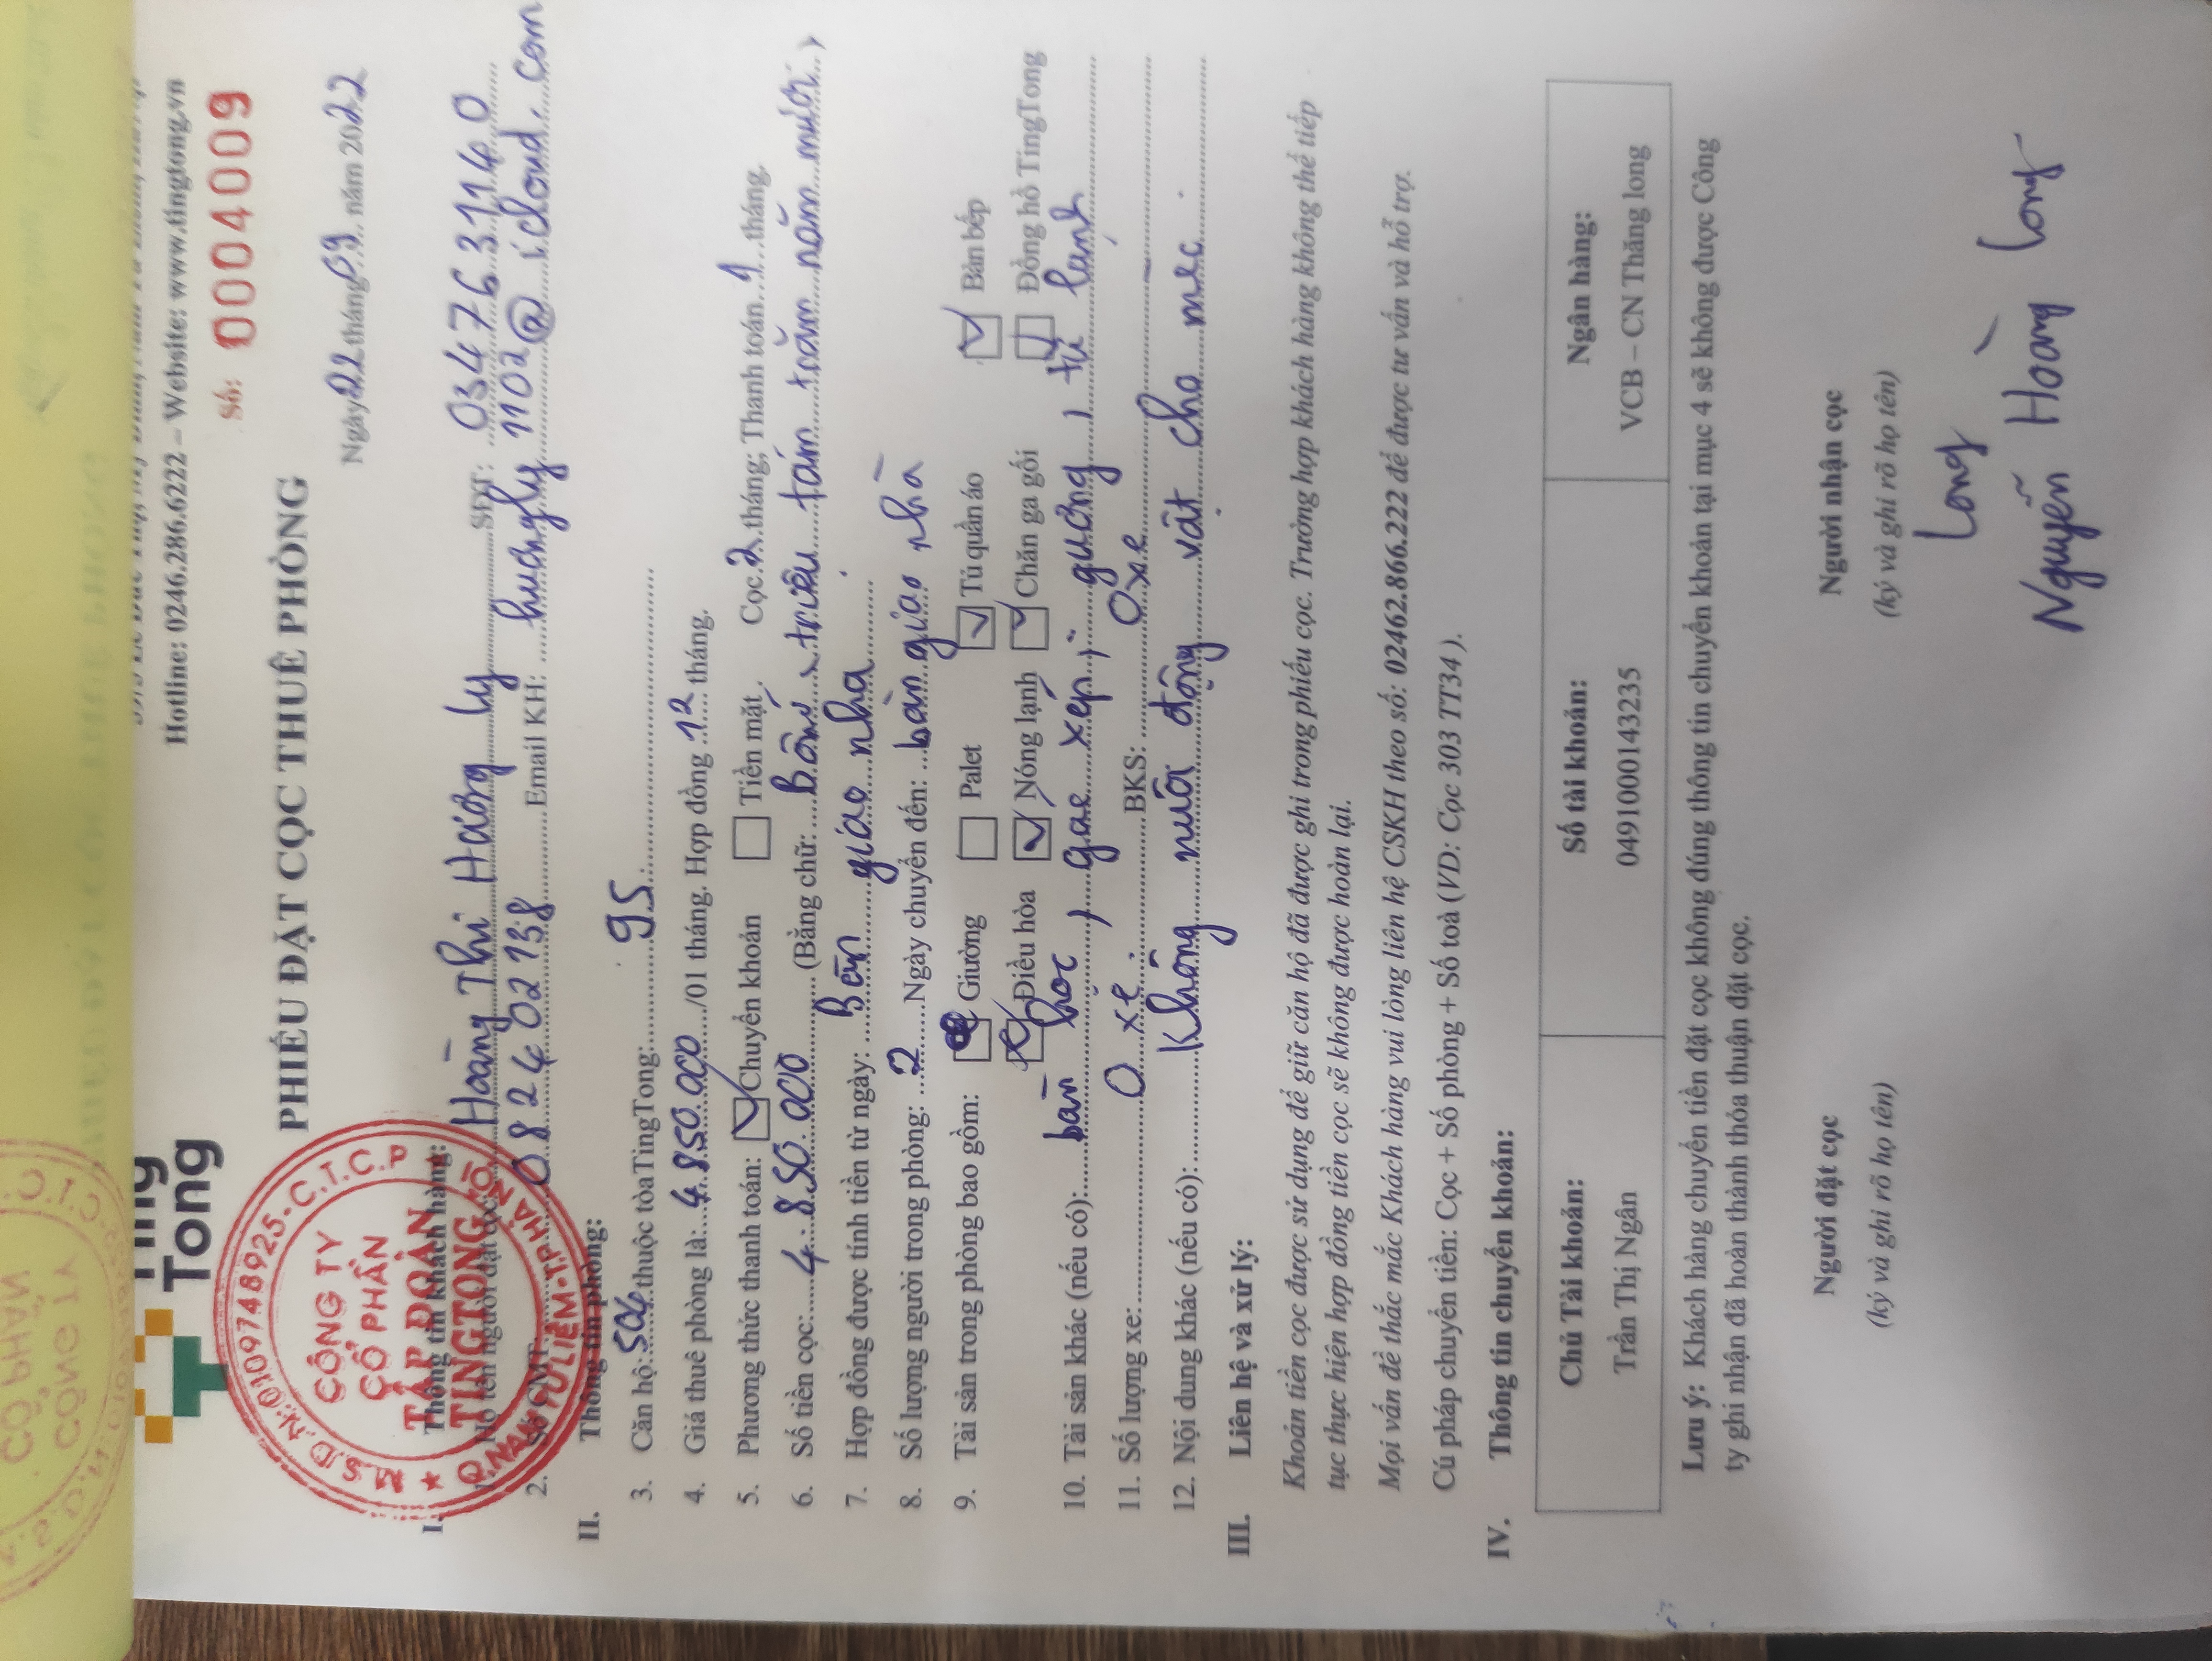 Ting
Tong
Hotline: 0246.286.6222 – Website: www.tingtong.vn
Số: 0004009
PHIẾU ĐẶT CỌC THUÊ PHÒNG
Ngày 22 tháng 09 năm 2022
M.S.D.N:0109748925-C.T.C.P
CÔNG TY
CỔ PHẦN
TẬP ĐOÀN
TINGTONG
Q.NAM TỪ LIÊM-T.P HÀ NỘI
I. Thông tin khách hàng:
1. Họ tên người đặt cọc: Hoàng Thi Hương Ly SĐT: 0347631140
2. Số CMT: 082402138 Email KH: huongly1102@icloud.com
II. Thông tin phòng:
3. Căn hộ: 504 thuộc tòa TingTong: 95
4. Giá thuê phòng là: 4.850.000 /01 tháng. Hợp đồng 12 tháng.
5. Phương thức thanh toán: Chuyển khoản Tiền mặt. Cọc 2 tháng; Thanh toán 1 tháng.
6. Số tiền cọc: 4.850.000 (Bằng chữ: Bốn triệu tám trăm năm mươi)
7. Hợp đồng được tính tiền từ ngày: Bên giao nhà
8. Số lượng người trong phòng: 2 Ngày chuyển đến: bàn giao nhà
9. Tài sản trong phòng bao gồm: Giường Palet Tủ quần áo Bàn bếp
Điều hòa Nóng lạnh Chăn ga gối Đồng hồ TingTong
10. Tài sản khác (nếu có): bàn học, gác xép, gương, tủ lạnh
11. Số lượng xe: 0 xe. BKS: 0 xe
12. Nội dung khác (nếu có): Không nuôi động vật chó mèo.
III. Liên hệ và xử lý:
Khoản tiền cọc được sử dụng để giữ căn hộ đã được ghi trong phiếu cọc. Trường hợp khách hàng không thể tiếp
tục thực hiện hợp đồng tiền cọc sẽ không được hoàn lại.
Mọi vấn đề thắc mắc Khách hàng vui lòng liên hệ CSKH theo số: 02462.866.222 để được tư vấn và hỗ trợ.
Cú pháp chuyển tiền: Cọc + Số phòng + Số toà (VD: Cọc 303 TT34).
IV. Thông tin chuyển khoản:
Chủ Tài khoản: Số tài khoản: Ngân hàng:
Trần Thị Ngân 0491000143235 VCB – CN Thăng long
Lưu ý: Khách hàng chuyển tiền đặt cọc không đúng thông tin chuyển khoản tại mục 4 sẽ không được Công
ty ghi nhận đã hoàn thành thỏa thuận đặt cọc.
Người đặt cọc Người nhận cọc
(ký và ghi rõ họ tên) (ký và ghi rõ họ tên)
Long
Nguyễn Hoàng Long